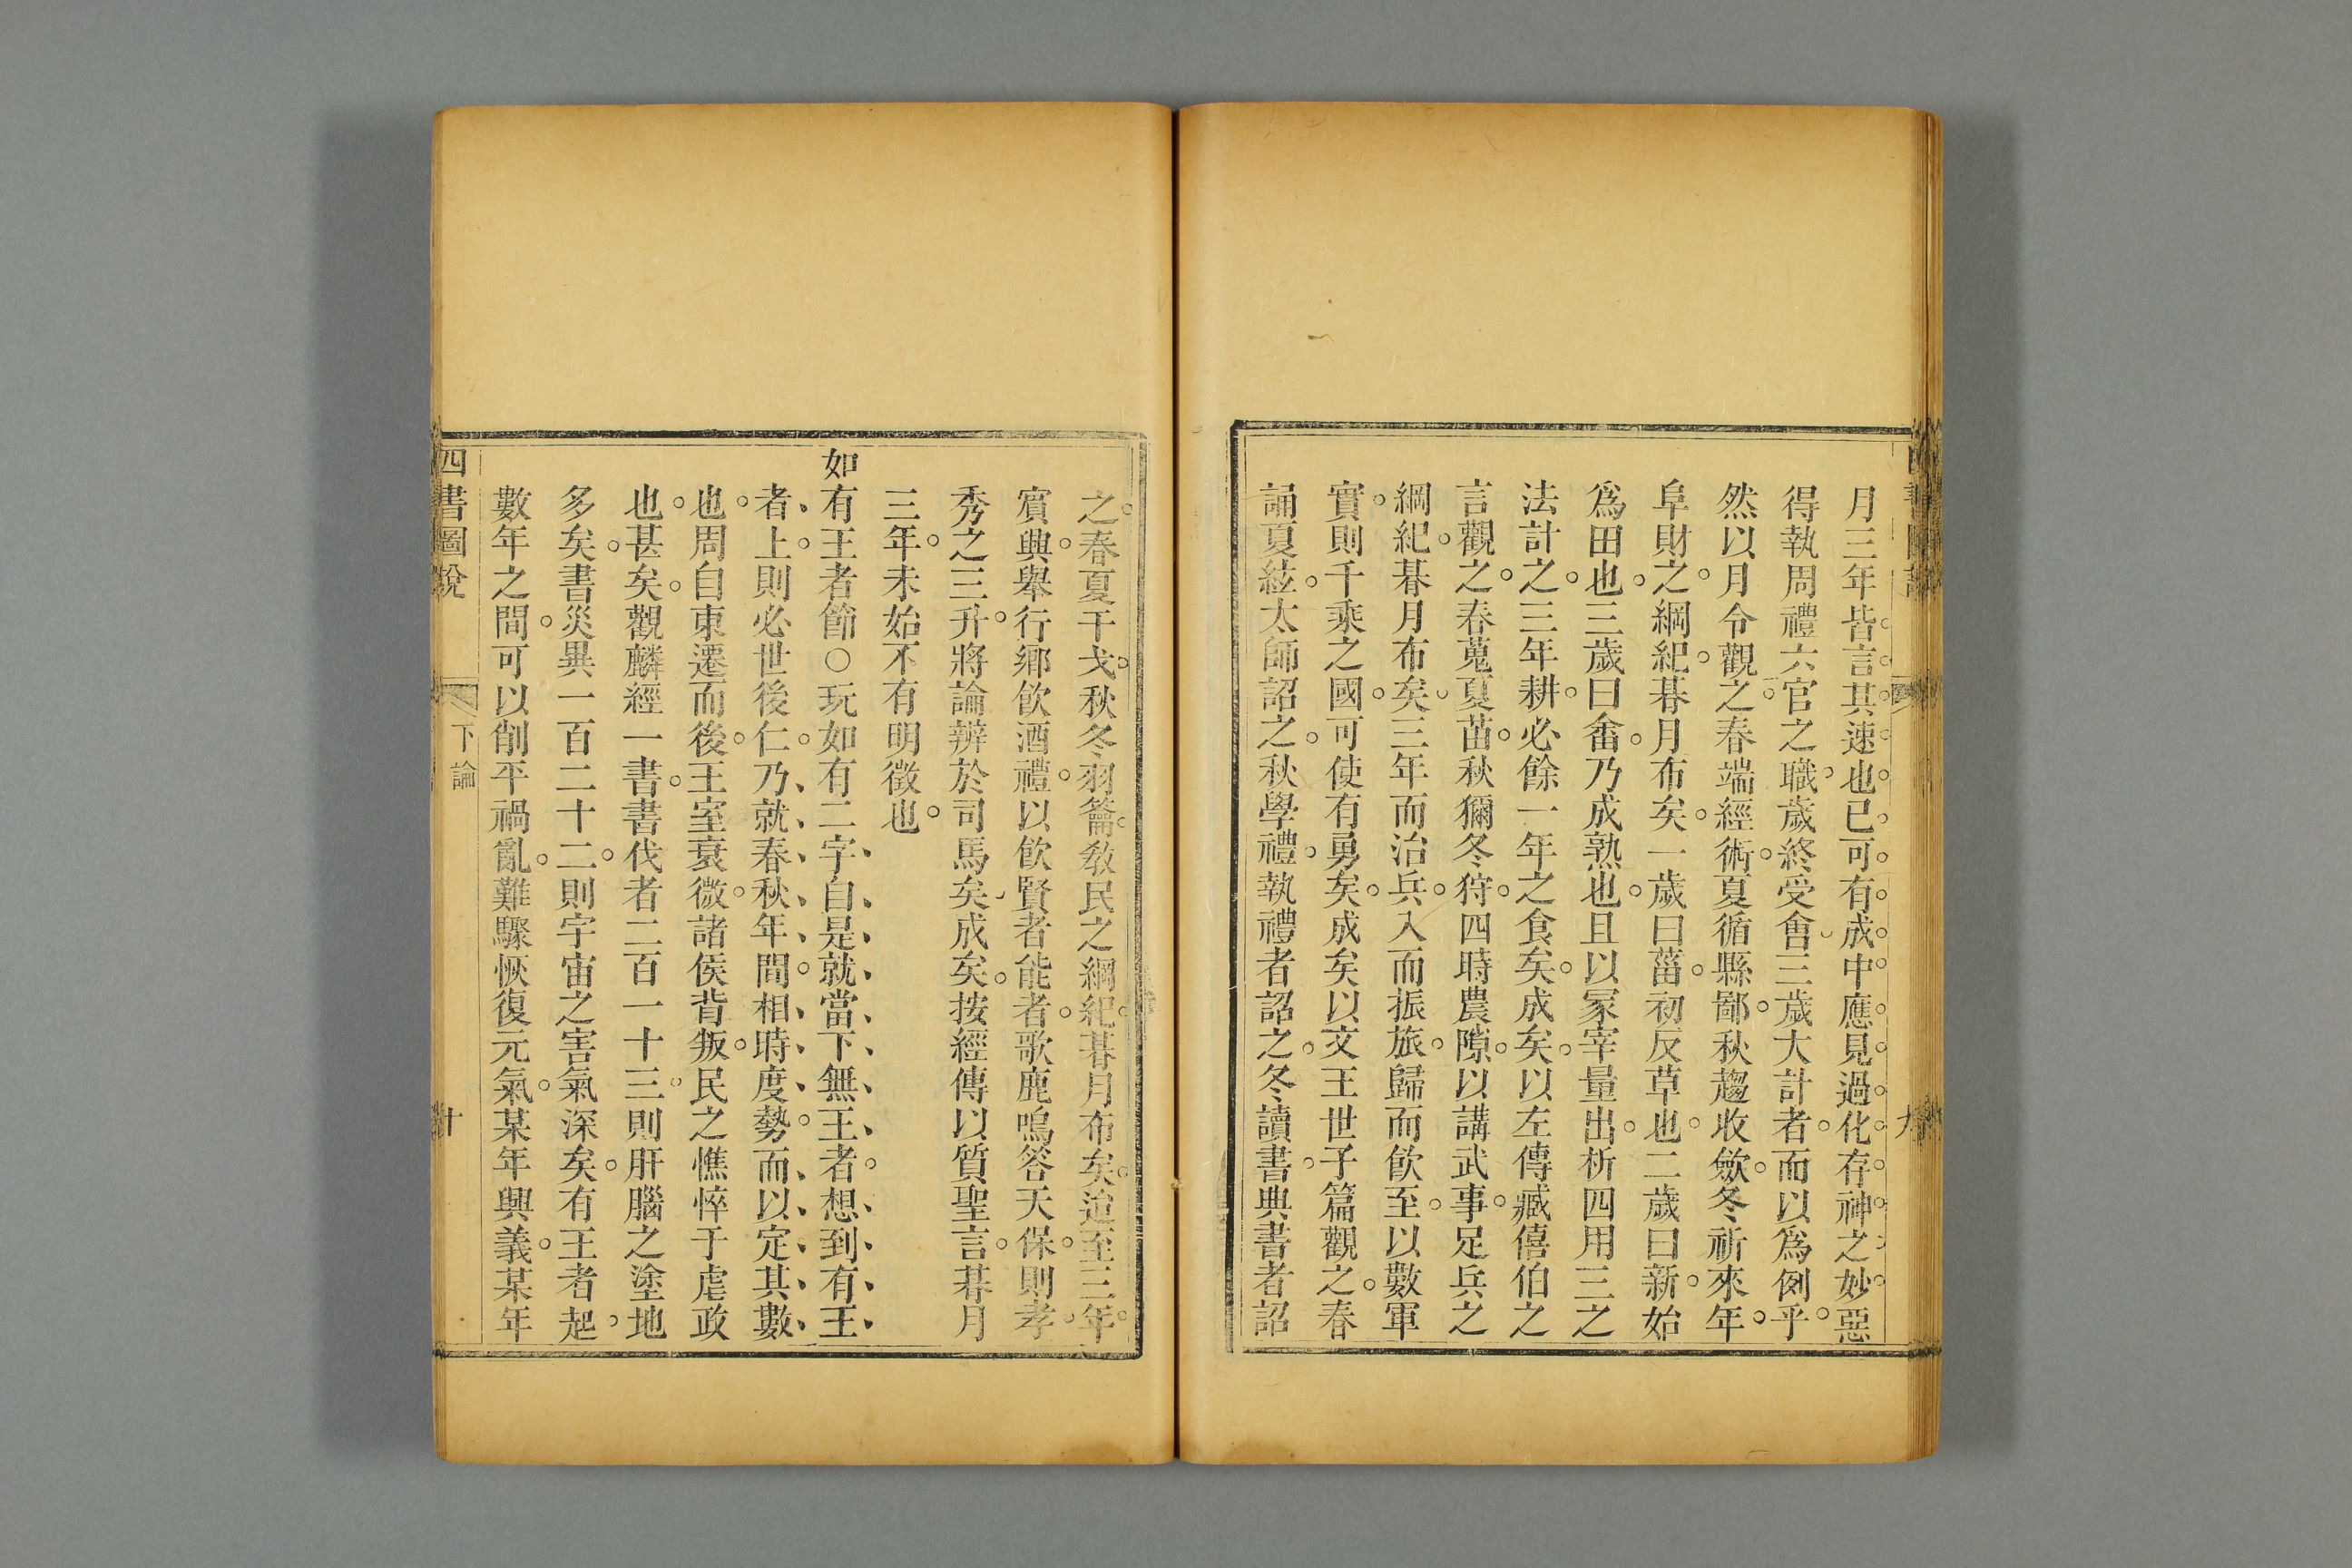 月三年皆言其速也已可有成中應見過化存神之妙惡
得執周禮六官之職歲終受會三歲大計者而以爲例乎
然以月令觀之春端經術夏循縣鄙秋趨收斂冬祈來年
阜財之綱紀朞月布矣一歲曰菑初反草也二歲曰新始
爲田也三歲曰畬乃成熟也且以冡宰量出析四用三之
法計之三年耕必餘一年之食矣成矣以左傳臧僖伯之
言觀之春蒐夏苗秋獮冬狩四時農隙以講武事足兵之
綱紀朞月布矣三年而治兵入而振旅歸而飮至以數軍
實則千乘之國可使有勇矣成矣以文王世子篇觀之春
誦夏絃太師詔之秋學禮執禮者詔之冬讀書典書者詔
九
之春夏干戈秋冬羽籥敎民之綱紀朞月布矣迨至三年
賓興舉行鄉飮酒禮以飮賢者能者歌鹿鳴答天保則孝
秀之三升將論辨於司馬矣成矣按經傳以質聖言朞月
三年未始不有明徵也
如有王者節○玩如有二字自是就當下無王者想到有王
者上則必世後仁乃就春秋年間相時度勢而以定其數
也周自東遷而後王室衰微諸侯背叛民之憔悴于虐政
也甚矣觀麟經一書書伐者二百一十三則肝腦之塗地
多矣書災異一百二十二則宇宙之害氣深矣有王者起
數年之間可以削平禍亂難驟恢復元氣某年興義某年
四書圖說 下論 十